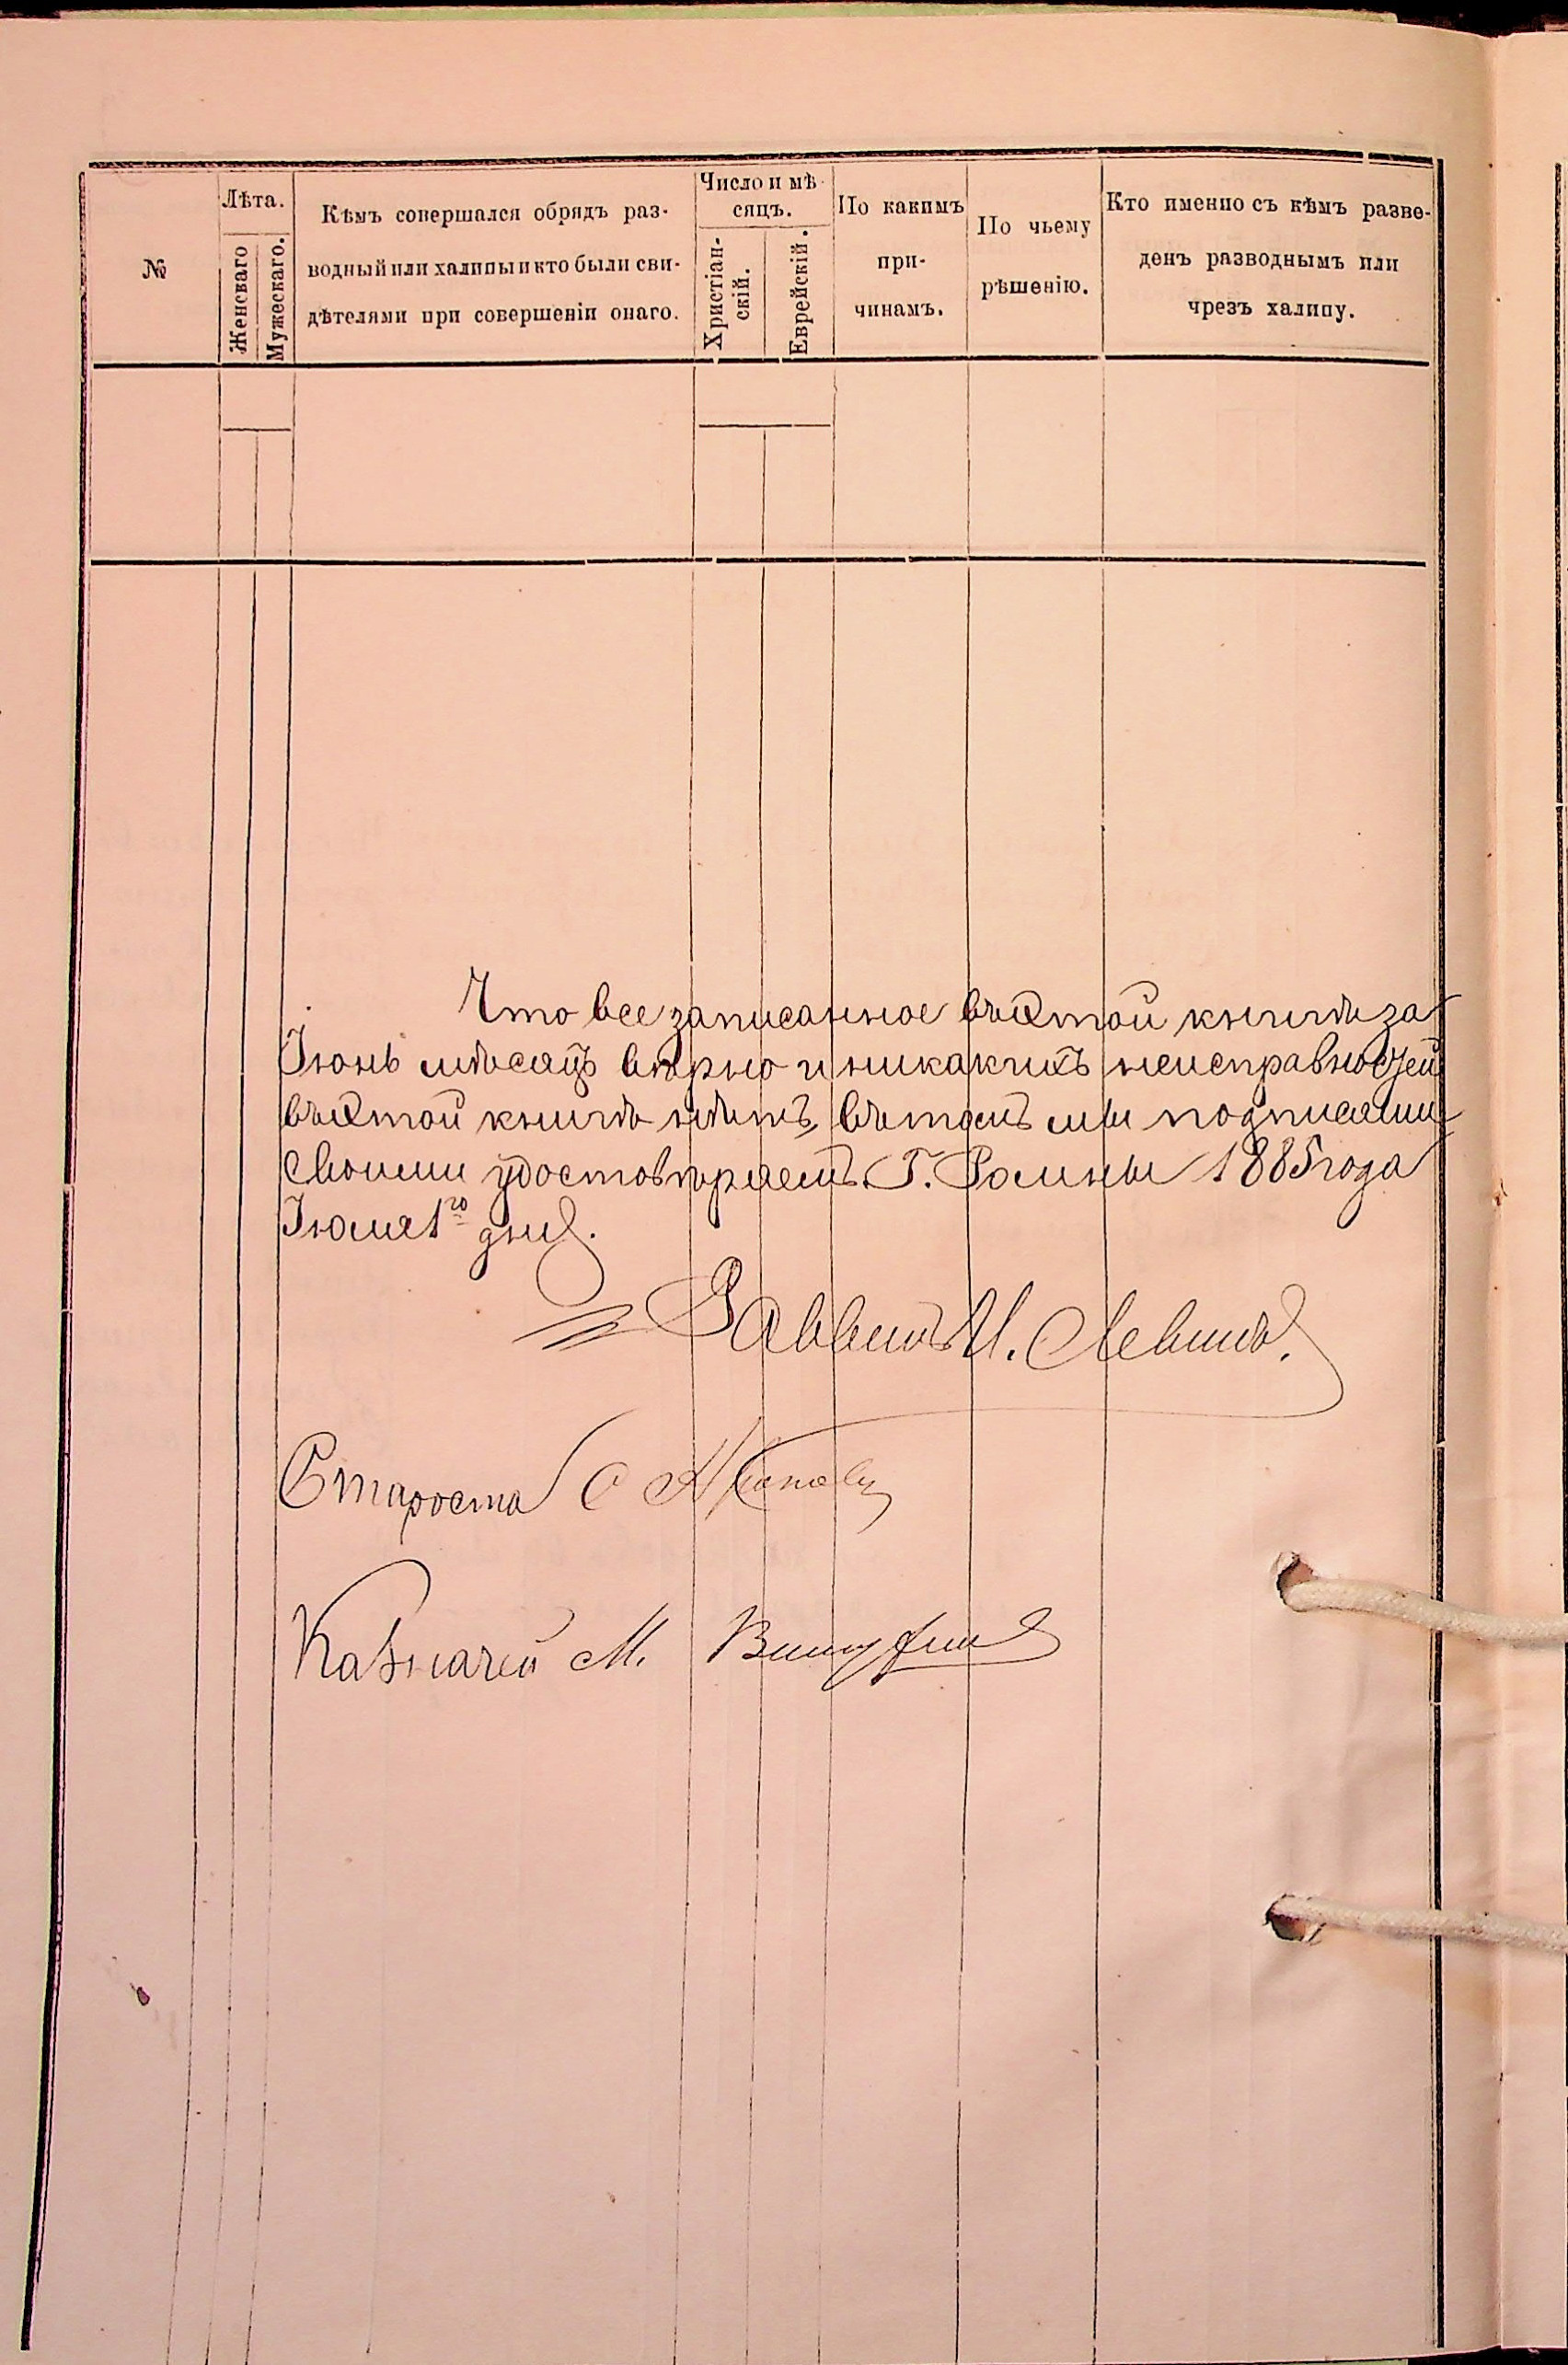 №
Лѣта.
Женскаго
Мужескаго.
Кѣмъ совершался обрядъ раз-
водный или халицы и кто были сви-
дѣтелями при совершеніи онаго.
Число и мѣ-
сяцъ.
Христіан-
скій.
Еврейскій.
По какимъ
при-
чинамъ.
По чьему
рѣшенію.
Кто именно съ кѣмъ разве-
денъ разводнымъ или
чрезъ халицу.
Что все записанное въ этой книгѣ за
Іюнь мѣсяцъ вѣрно и никакихъ неисправностей
въ этой книгѣ нѣтъ, въ томъ мы подписями
своими удостовѣряемъ. Г. Ромны 1885 года
Іюля 1го дня.
Раввинъ И. Левинъ.
Староста С
Казначей М.